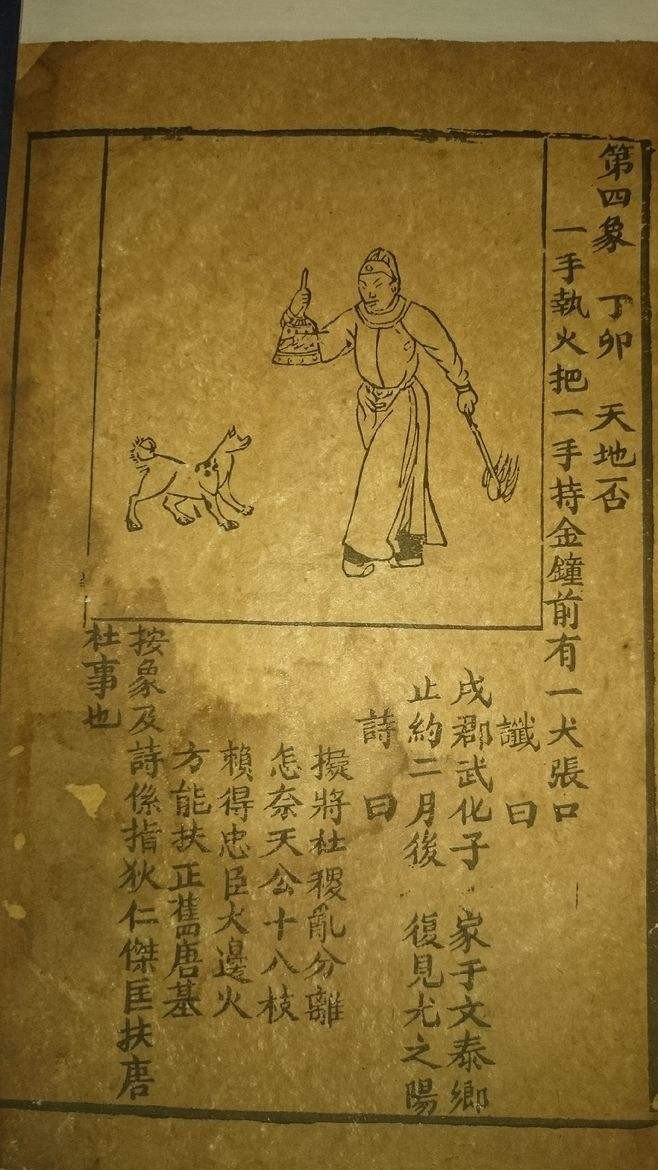 第四象 丁卯 天地否
一手執火把一手持金鐘前有一犬張口
讖曰
戌郡武化子 家于文泰鄉
止約二月後 復見尤之陽
詩曰
擬將杜稷亂分離
怎奈天公十八枝
賴得忠臣犬邊火
方能扶正舊唐基
按象及詩係指狄仁傑匡扶唐
杜事也